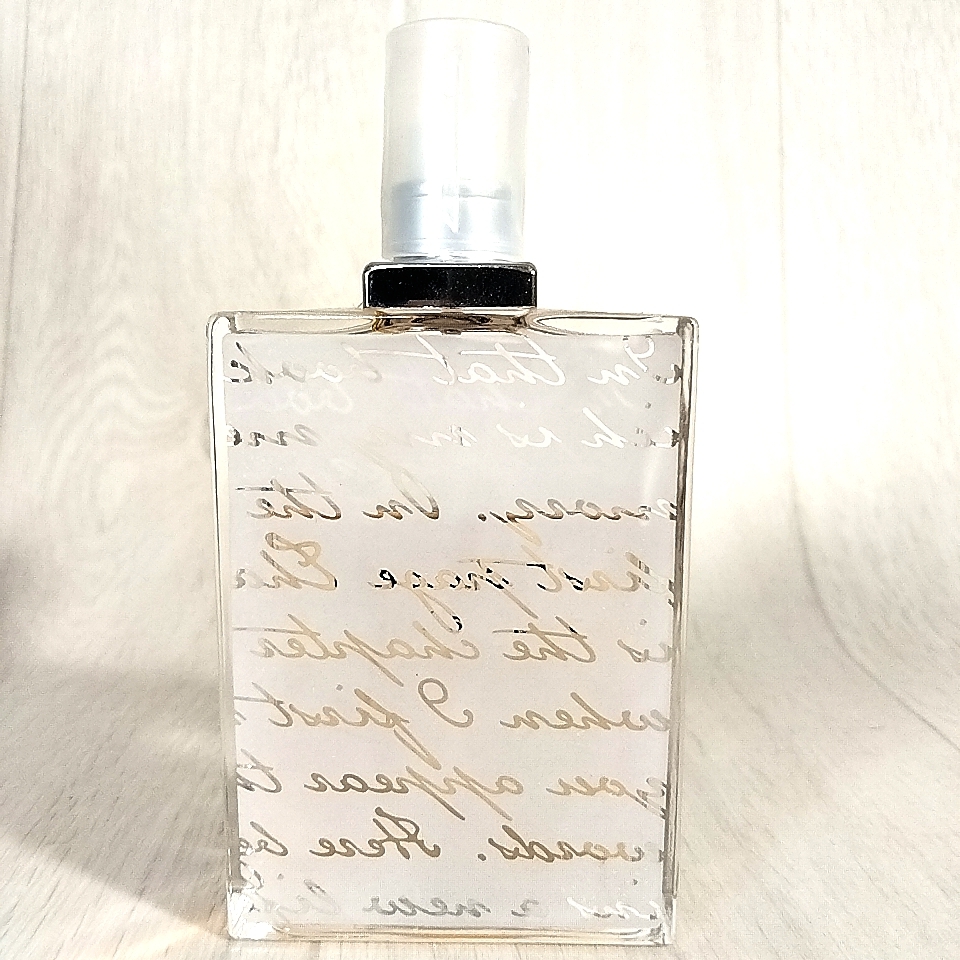 In that book
is
mory. In the
first page tha
is the chapter
when I first
you appear t
words. Here b
ins a new lif